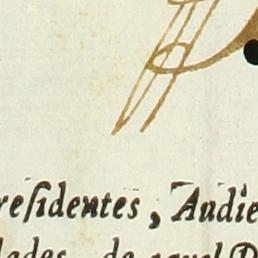 reſidentes, Audie
lades, de aquel